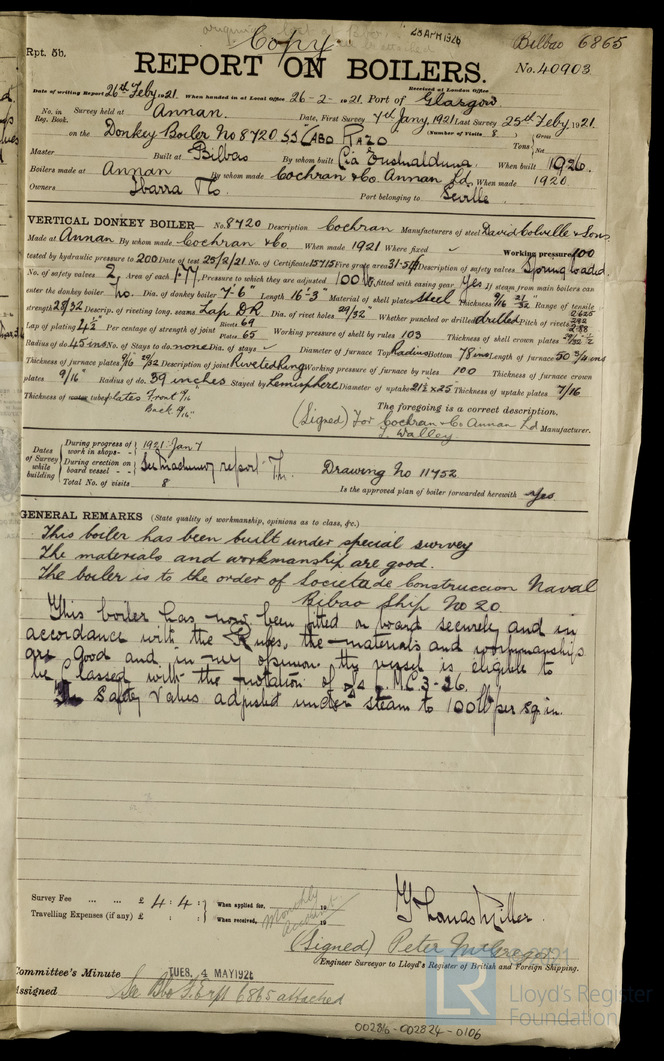 Copy
28 APR 1926
Bilbao 6865
Rpt. 5b.
REPORT ON BOILERS.
No. 40903
Received at London Office
Date of writing Report 26th Feby 1921. When handed in at Local Office 26-2-1921. Port of Glasgow
No. in Reg. Book. Survey held at Annan. Date, First Survey 7th Jany, 1921 Last Survey 25th Feby 1921.
(Number of Visits 8)
on the Donkey Boiler No 8720 SS CABO RAZO
Tons Gross Net
Master Built at Bilbao By whom built Cia Euskalduna When built 1926.
Boilers made at Annan By whom made Cochran & Co. Annan Ld. When made 1920
Owners Ibarra Port belonging to Seville
VERTICAL DONKEY BOILER— No. 8720 Description Cochran Manufacturers of steel David Colville & Sons
Made at Annan By whom made Cochran & Co When made 1921 Where fixed Working pressure 100
tested by hydraulic pressure to 200 Date of test 25/2/21 No. of Certificate 15715 Fire grate area 31.5 Description of safety valves Spring loaded
No. of safety valves 2 Area of each 1.77 Pressure to which they are adjusted 100 lb. If fitted with casing gear Yes If steam from main boilers can
enter the donkey boiler No. Dia. of donkey boiler 7'-6" Length 16'-3 Material of shell plates Steel Thickness 9/16 21/32 Range of tensile
strength 28/32 Descrip. of riveting long. seams Lap DR. Dia. of rivet holes 29/32 Whether punched or drilled drilled Pitch of rivets 2.625 2.92 2.88
Lap of plating 4 1/2 Per centage of strength of joint Rivets 69 Plates 65 Working pressure of shell by rules 103 Thickness of shell crown plates
Radius of do. 45 ins No. of Stays to do. none Dia. of stays Diameter of furnace Top Radius Bottom 78 ins Length of furnace 50 3/4 ins
Thickness of furnace plates 9/16 29/32 Description of joint Riveted Ring Working pressure of furnace by rules 100 Thickness of furnace crown
plates 9/16" Radius of do. 39 inches Stayed by Hemisphere Diameter of uptake 21 1/2 x 25" Thickness of uptake plates 7/16
Thickness of water tubes plates Front 9/16 Back 9/16"
The foregoing is a correct description,
(Signed) For Cochran & Co Annan Ld Manufacturer.
J. Walley
Dates of Survey while building
During progress of work in shops - - 1921: Jan 7
During erection on board vessel - - See Machinery report
Total No. of visits 8
Drawing No 11452
Is the approved plan of boiler forwarded herewith Yes
GENERAL REMARKS (State quality of workmanship, opinions as to class, &c.)
This boiler has been built under special survey
The materials and workmanship are good.
The boiler is to the order of Societe de Construccion Naval
Bilbao Ship No 20.
This boiler has now been fitted on board securely and in
accordance with the Rules, the materials and workmanship
are good and in my opinion the vessel is eligible to
be classed with the notation of L.M.C. 3-26.
The Safety Valves adjusted under steam to 100 lb per sq. in.
Survey Fee ... ... £ 4 : 4 : When applied for, 19
Travelling Expenses (if any) £ : : When received, 19
Monthly account
Thomas Miller.
(Signed) Peter McGregor
Engineer Surveyor to Lloyd's Register of British and Foreign Shipping.
Committee's Minute TUES. 4 MAY 1926
Assigned See Bbo F.E. rpt 6865 attached
LR
Lloyd's Register
Foundation
002816-002824-0106